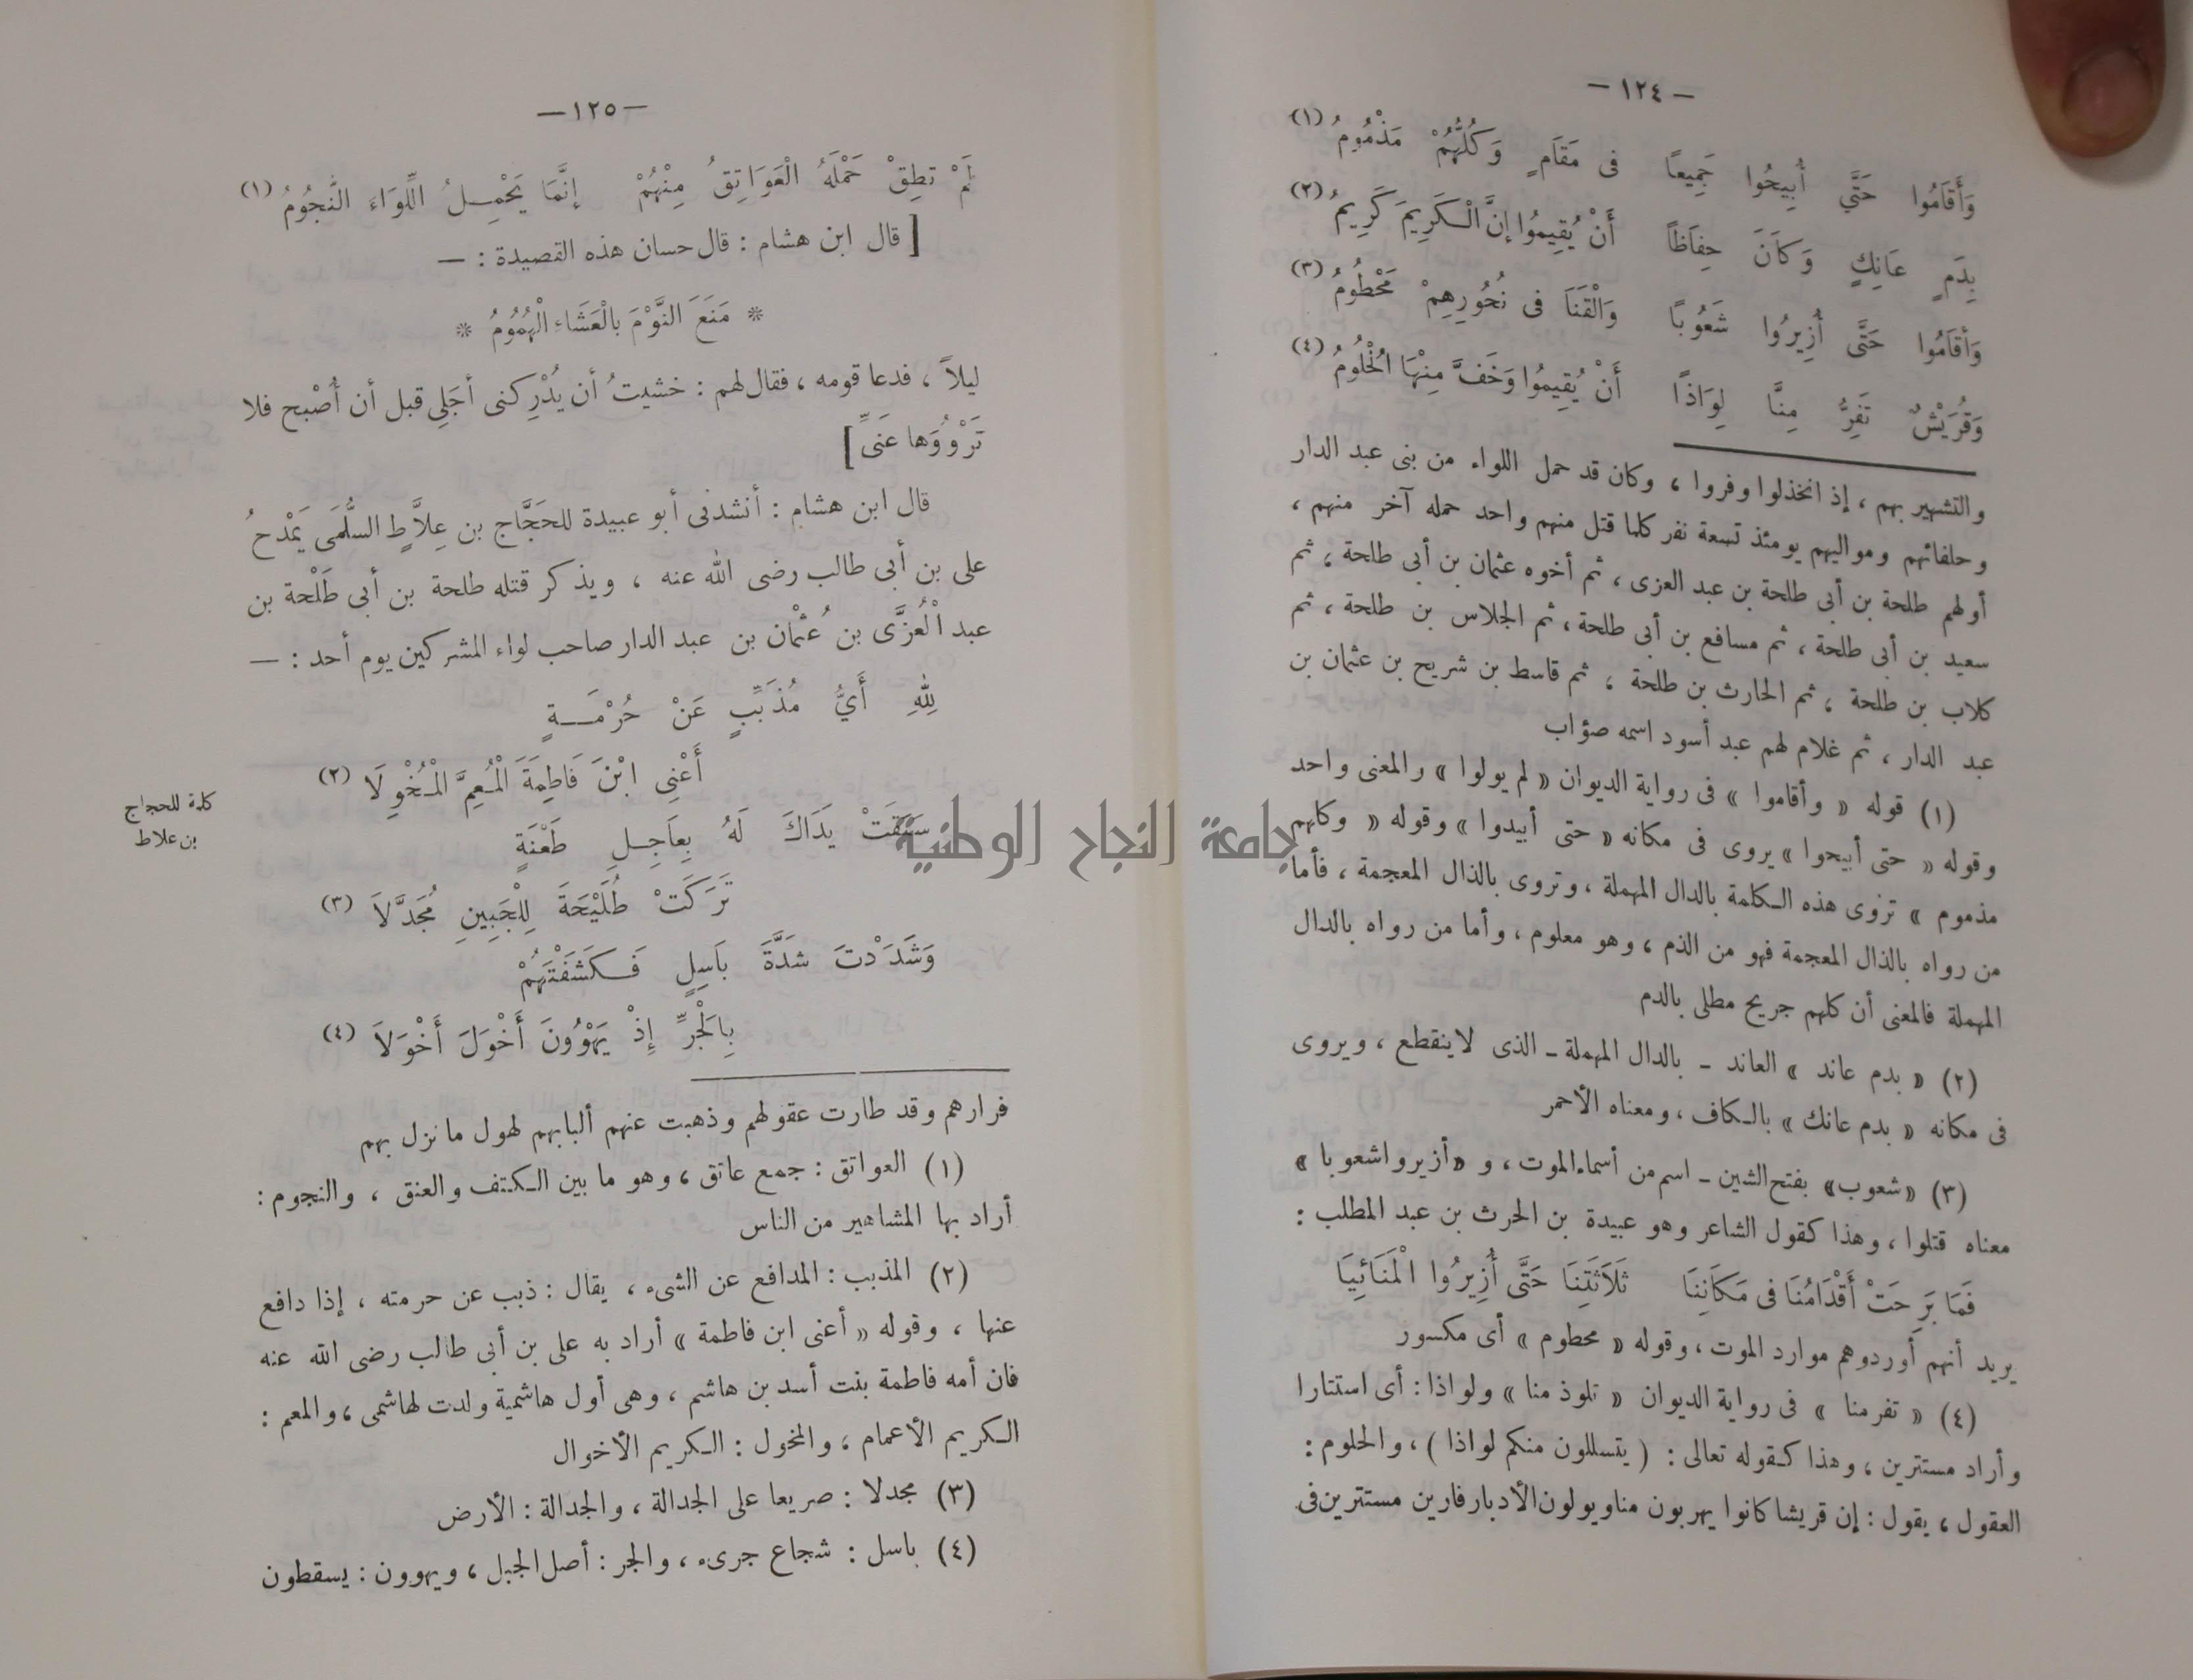 — ١٢٤ —
وَأَقَامُوا حَتَّى أُبِيحُوا جَمِيعًا فى مَقَامٍ وَكُلُّهُمْ مَذْمُومُ (١)
بِدَمٍ عَانِكٍ وَكَانَ حِفَاظًا أَنْ يُقِيمُوا إنَّ الْكَرِيمَ كَرِيمُ (٢)
وَأقَامُوا حَتَّى أُزِيرُوا شَعُوبًا وَالْقَنَا فى نُحُورِهِمْ مَحْطُومُ (٣)
وَقُرَيْشٌ تَفِرُّ مِنَّا لِوَاذًا أَنْ يُقِيمُوا وَخَفَّ مِنْهَا الْحُلُومُ (٤)
والتشهير بهم ، إذ انخذلوا وفروا ، وكان قد حمل اللواء من بنى عبد الدار
وحلفائهم ومواليهم يومئذ تسعة نفر كلما قتل منهم واحد حمله آخر منهم ،
أولهم طلحة بن أبى طلحة بن عبد العزى ، ثم أخوه عثمان بن أبى طلحة ، ثم
سعيد بن أبى طلحة ، ثم مسافع بن أبى طلحة ، ثم الجلاس بن طلحة ، ثم
كلاب بن طلحة ، ثم الحارث بن طلحة ، ثم قاسط بن شريح بن عثمان بن
عبد الدار ، ثم غلام لهم عبد أسود اسمه صؤاب
(١) قوله « وأقاموا » فى رواية الديوان « لم يولوا » والمعنى واحد
وقوله « حتى أبيحوا » يروى فى مكانه « حتى أبيدوا » وقوله « وكلهم
مذموم » تروى هذه الكلمة بالدال المهملة ، وتروى بالذال المعجمة ، فأما
من رواه بالذال المعجمة فهو من الذم ، وهو معلوم ، وأما من رواه بالدال
المهملة فالمعنى أن كلهم جريح مطلى بالدم
(٢) « بدم عاند » العاند ــ بالدال المهملة ــ الذى لاينقطع ، ويروى
فى مكانه « بدم عانك » بالكاف ، ومعناه الأحمر
(٣) «شعوب» بفتح الشين ــ اسم من أسماء الموت ، و «أزيروا شعوبا»
معناه قتلوا ، وهذا كقول الشاعر وهو عبيدة بن الحرث بن عبد المطلب :
فَمَا بَرِحَتْ أَقْدَامُنَا فى مَكَانِنَا ثَلَاثَتِنَا حَتَّى أُزِيرُوا الْمَنَائِيَا
يريد أنهم أوردوهم موارد الموت ، وقوله « محطوم » أى مكسور
(٤) « تفر منا » فى رواية الديوان « تلوذ منا » ولواذا : أى استتارا
وأراد مستترين ، وهذا كقوله تعالى : ( يتسللون منكم لواذا ) ، والحلوم :
العقول ، يقول : إن قريشا كانوا يهربون منا ويولون الأدبار فارين مستترين فى
— ١٢٥ —
لَمْ تُطِقْ حَمْلَهُ الْعَوَاتِقُ مِنْهُمْ إنَّمَا يَحْمِلُ اللِّوَاءَ النُّجُومُ (١)
[ قال ابن هشام : قال حسان هذه القصيدة : —
* مَنَعَ النَّوْمَ بالْعَشَاءِ الْهُمُومُ *
ليلاً ، فدعا قومه ، فقال لهم : خشيتُ أن يُدْرِكنى أجَلِى قبل أن أُصْبح فلا
تَرْوُوها عَنىِّ ]
قال ابن هشام : أنشدنى أبو عبيدة للحَجَّاج بن عِلاَّطٍ السُّلَمَى يَمْدحُ
على بن أبى طالب رضى الله عنه ، ويذكر قتله طلحة بن أبى طَلْحة بن
عبد الْعُزَّى بن عُثْمان بن عبد الدار صاحب لواء المشركين يوم أحد : —
لِلّٰهِ أَيُّ مُذَبِّبٍ عَنْ حُرْمَةٍ
أَعْنِى ابْنَ فَاطِمَةَ الْمُعِمَّ الْمُخْوِلَا (٢)
كلمة للحجاج
بن علاط
سَبَقَتْ يَدَاكَ لَهُ بِعَاجِلِ طَعْنَةٍ
جامعة النجاح الوطنية
تَرَكَتْ طُلَيْحَةَ لِلْجَبِينِ مُجَدَّلَا (٣)
وَشَدَدْتَ شَدَّةَ بَاسِلٍ فَكَشَفْتَهُمْ
بِالْجَرِّ إِذْ يَهْوُونَ أَخْوَلَ أَخْوَلَا (٤)
فرارهم وقد طارت عقولهم وذهبت عنهم ألبابهم لهول ما نزل بهم
(١) العواتق : جمع عاتق ، وهو ما بين الكتف والعنق ، والنجوم :
أراد بها المشاهير من الناس
(٢) المذبب : المدافع عن الشىء ، يقال : ذبب عن حرمته ، إذا دافع
عنها ، وقوله « أعنى ابن فاطمة » أراد به على بن أبى طالب رضى الله عنه
فان أمه فاطمة بنت أسد بن هاشم ، وهى أول هاشمية ولدت لهاشمى ، والمعم :
الكريم الأعمام ، والمخول : الكريم الأخوال
(٣) مجدلا : صريعا على الجدالة ، والجدالة : الأرض
(٤) باسل : شجاع جرىء ، والجر : أصل الجبل ، ويهوون : يسقطون